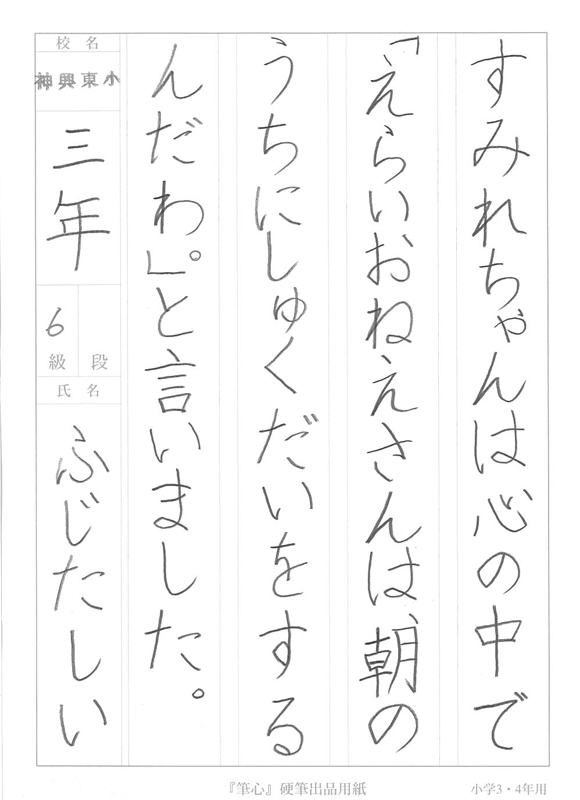 すみれちゃんは心の中で
「えらいおねえさんは、朝の
うちにしゅくだいをする
んだわ」。と言いました。
校名
神興東小
三年
6級
段
氏名
ふじたしい
『筆心』硬筆出品用紙
小学3・4年用